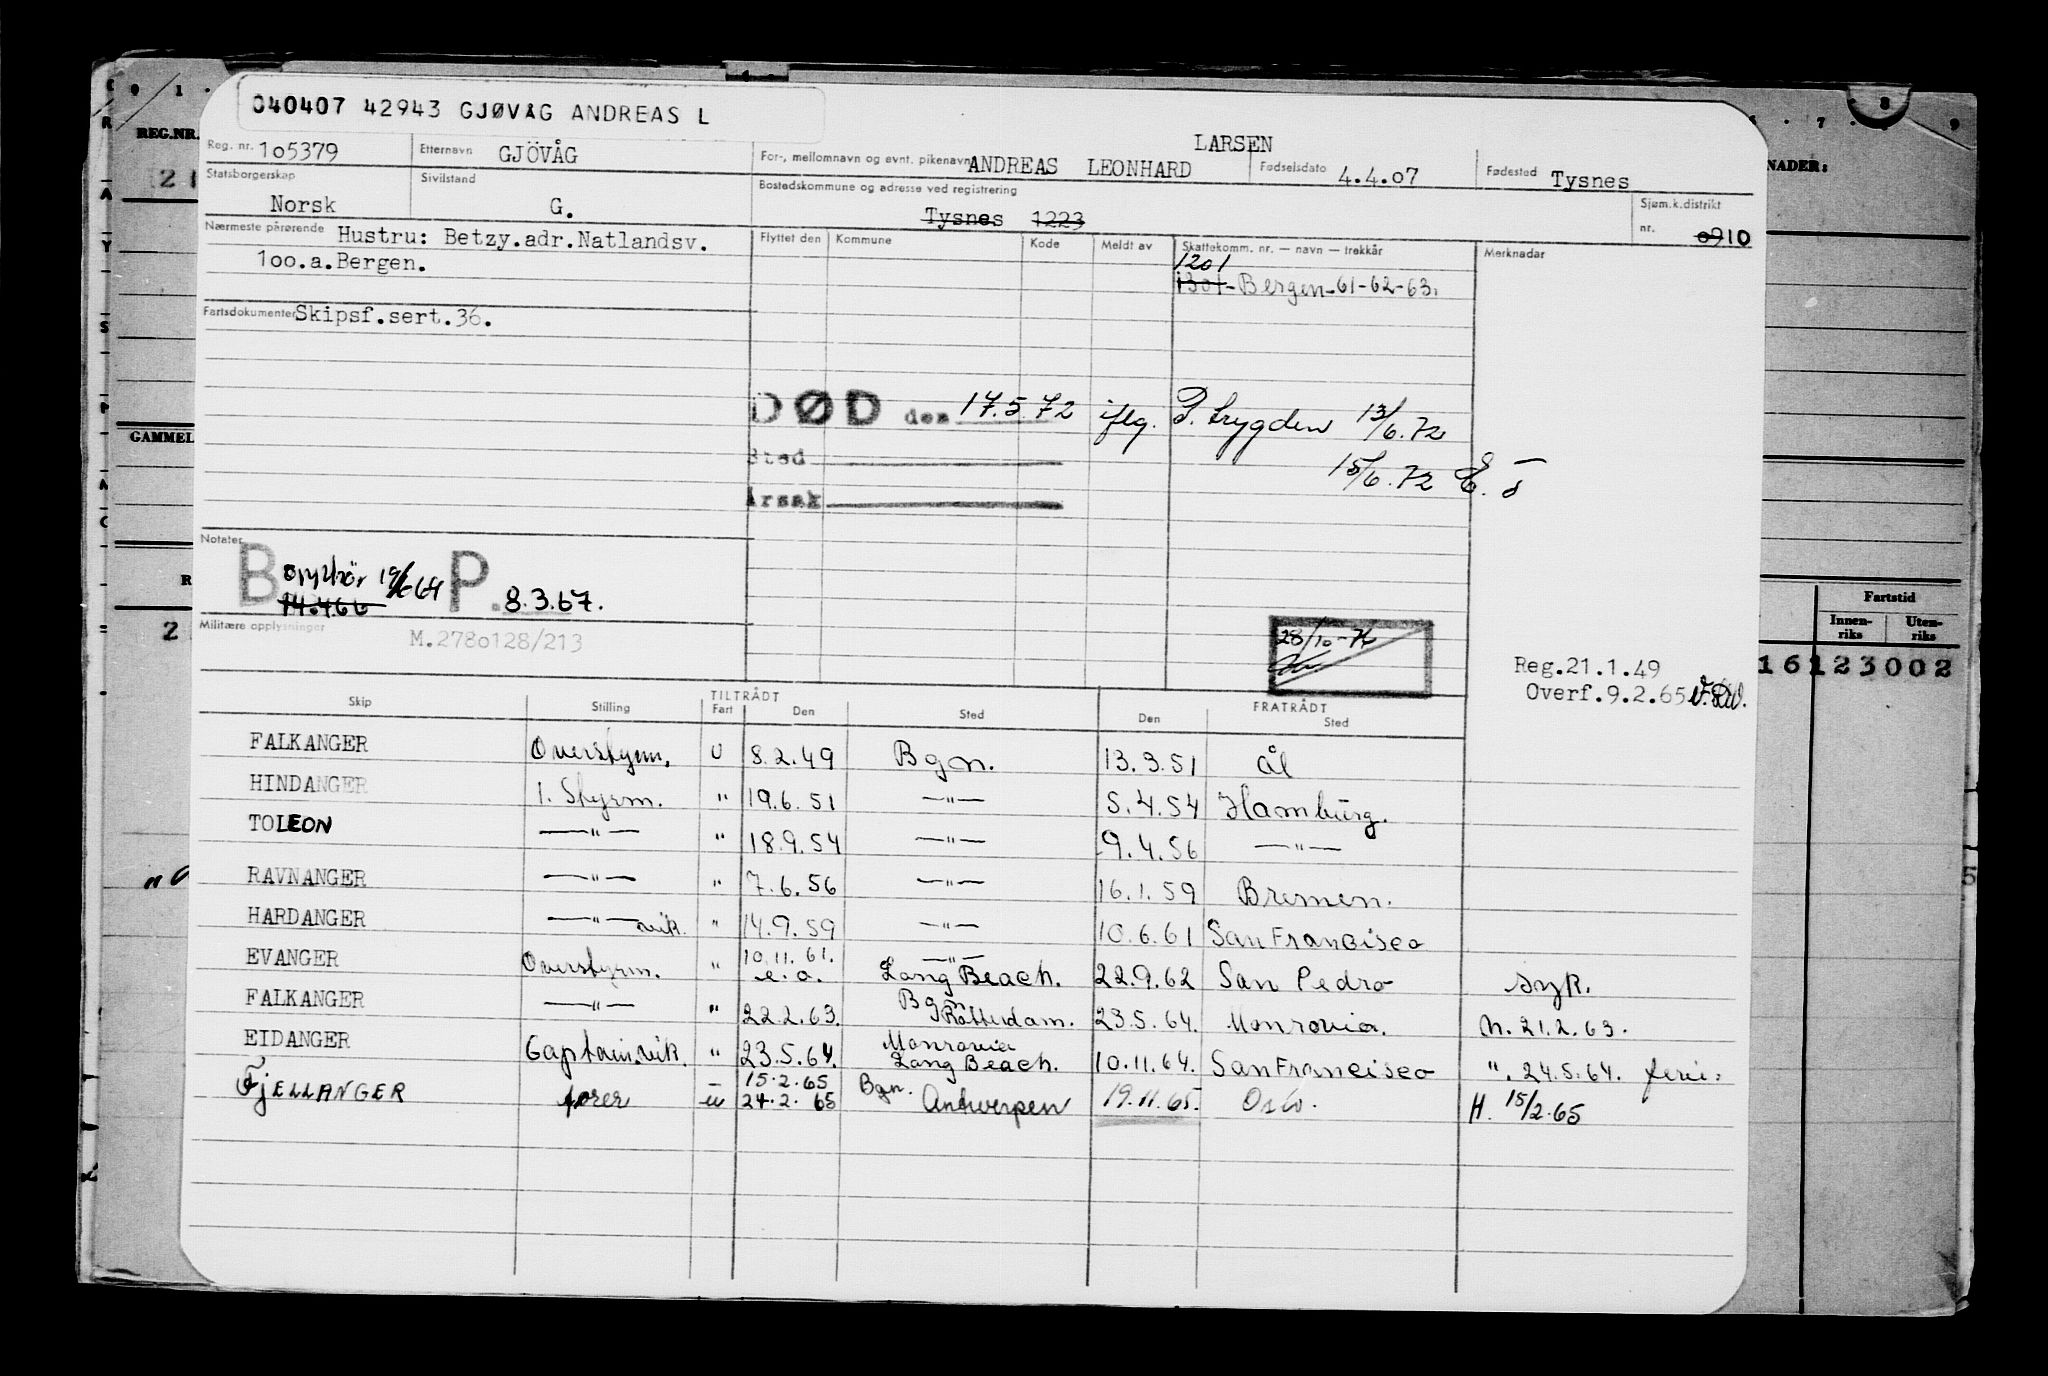 040407 42943 GJØVÅG ANDREAS L
REG.NR.
Reg. nr. 1o5379
Etternavn GJÖVÅG
For-, mellomnavn og evnt. pikenavn ANDREAS LEONHARD LARSEN
Fødselsdato 4.4.07
Fødested Tysnes
NADER:
Statsborgerskap Norsk
Sivilstand G.
Bostedskommune og adresse ved registrering
Tysnes 1223
Sjøm.k.distrikt nr. 0910
Nærmeste pårørende Hustru: Betzy.adr.Natlandsv.
1oo.a.Bergen.
Flyttet den Kommune Kode Meldt av Skattekomm. nr. — navn — trekkår Merknader
1201
1301-Bergen-61-62-63.
Fartsdokumenter Skipsf.sert.36.
DØD den 17.5.72 iflg. P. trygden 13/6.72
Sted
15/6.72
Årsak
GAMMEL
Notater
B 19/6 64 P. 8.3.67.
14.466
Militære opplysninger M.278o128/213
28/10-76
Reg.21.1.49
Overf.9.2.65
Fartstid
Innen-riks Uten-riks
16123002
TILTRÅDT FRATRÅDT
Skip Stilling Fart Den Sted Den Sted
FALKANGER Overstyrm. U 8.2.49 Bgn. 13.3.51 Ål
HINDANGER 1. Styrm. " 19.6.51 —"— 5.4.54 Hamburg.
TOLEON —"— " 18.9.54 —"— 9.4.56 —"—
RAVNANGER —"— " 7.6.56 —"— 16.1.59 Bremen.
HARDANGER —"— vik. " 14.9.59 —"— 10.6.61 San Francisco
EVANGER Overstyrm. " 10.11.61. e.o. —"— Long Beach. 22.9.62 San Pedro syk.
FALKANGER —"— " 22.2.63. Bgn Rotterdam. 23.5.64. Monrovia. M. 21.2.63.
EIDANGER Captein vik. " 23.5.64. Monrovia Long Beach. 10.11.64. San Francisco ". 24.5.64. ferie.
FJELLANGER fører — u 15.2.65 24.2.65 Bgn. Antwerpen 19.11.65. Oslo. H. 15/2.65